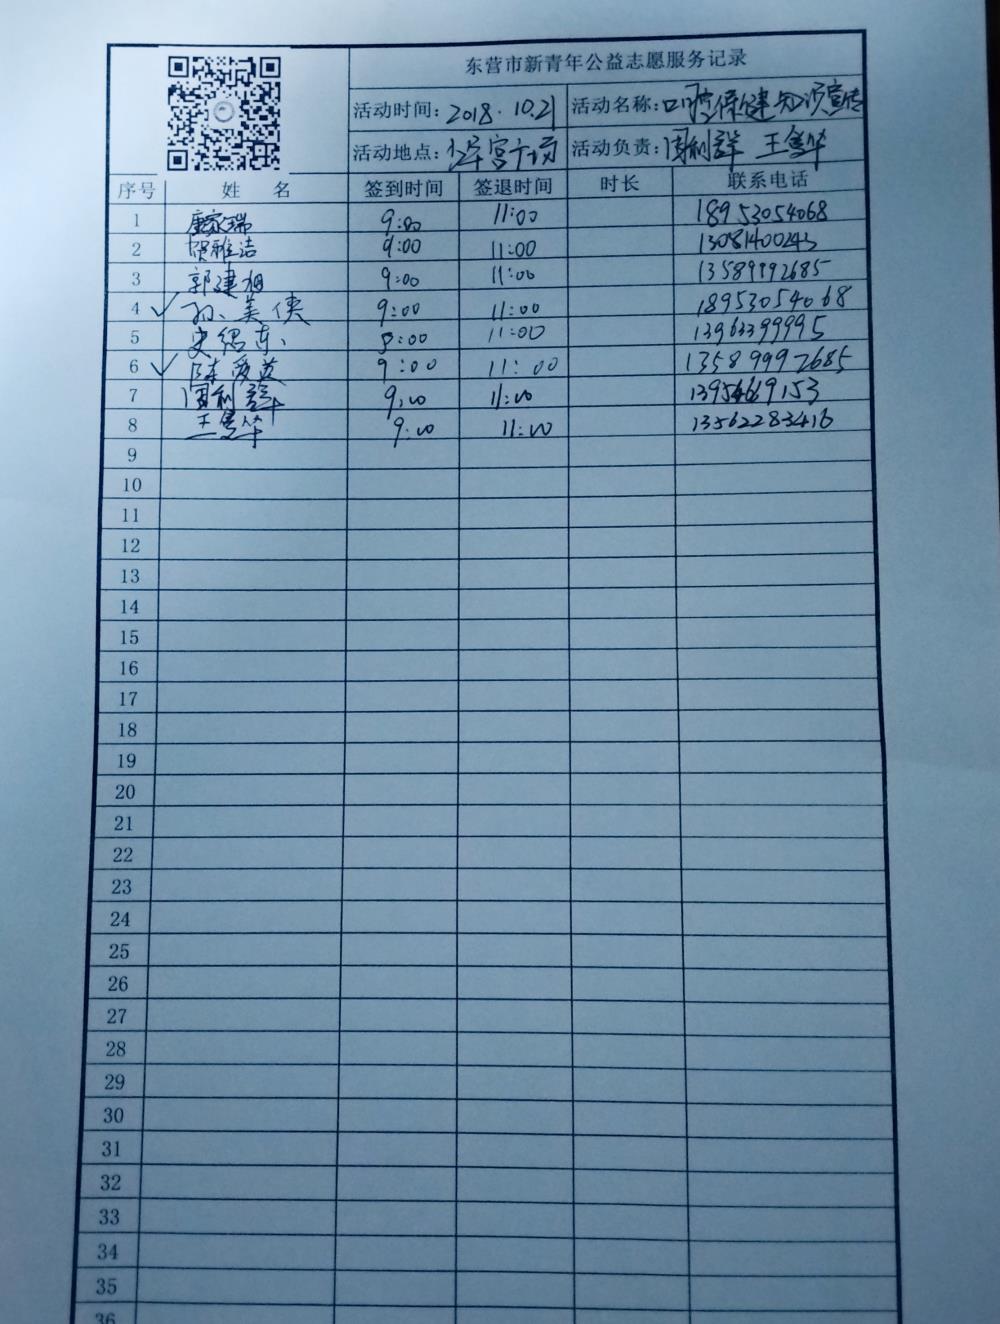 东营市新青年公益志愿服务记录
活动时间: 2018.10.21 活动名称: 口腔保健知识宣传
活动地点: 广场 活动负责: 周利群 王
序号 姓 名 签到时间 签退时间 时长 联系电话
1 康家瑞 9:00 11:00 18953054068
2 贺雅洁 9:00 11:00 13081400243
3 郭建旭 9:00 11:00 13589992685
4 ✓ 孙美侠 9:00 11:00 18953054068
5 史绍东 9:00 11:00 13963399995
6 ✓ 陈爱英 9:00 11:00 13589992685
7 周利群 9:00 11:00
8 王 9:00 11:00 13562283416
9
10
11
12
13
14
15
16
17
18
19
20
21
22
23
24
25
26
27
28
29
30
31
32
33
34
35
36